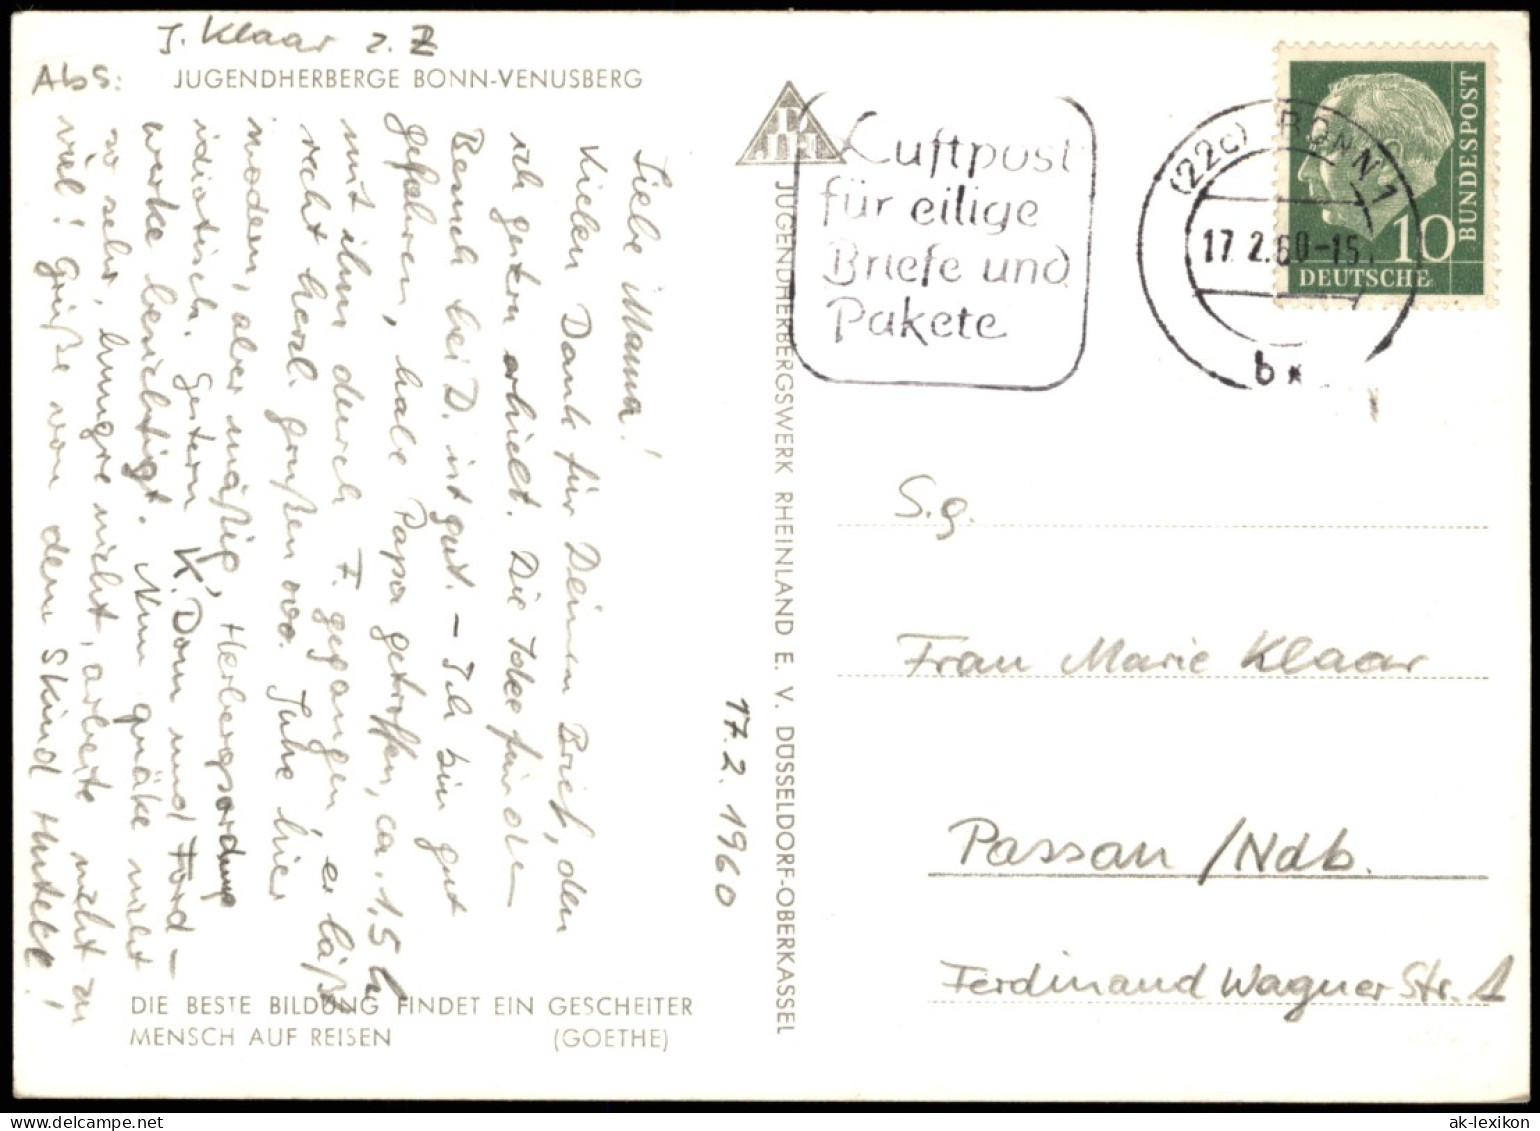 J. Klaar z. Z
Abs: JUGENDHERBERGE BONN-VENUSBERG
Liebe Mama!
Vielen Dank für Deinen Brief, den
ich gestern erhielt. Die Idee für den
Besuch bei D. ist gut. – Ich bin gut
gefahren, habe Papa getroffen, ca. 1,5 h
mit ihm durch F. gegangen, er läßt
recht herzl. grüßen
modern, aber mäßig, Herbergsordnung
idiotisch. Gestern K. Dom und Ford–
werke besichtigt. Nun quäke nicht
so sehr, hungre nicht, arbeite nicht zu
viel! Grüße von dem
17.2.1960
DIE BESTE BILDUNG FINDET EIN GESCHEITER
MENSCH AUF REISEN (GOETHE)
JUGENDHERBERGSWERK RHEINLAND E. V. DÜSSELDORF-OBERKASSEL
Luftpost
für eilige
Briefe und
Pakete
(22c) BONN 1
17.2.60-15
b
10
DEUTSCHE
BUNDESPOST
S.g.
Frau Marie Klaar
Passau /Ndb.
Ferdinand Wagner Str. 1
ak-lexikon.de